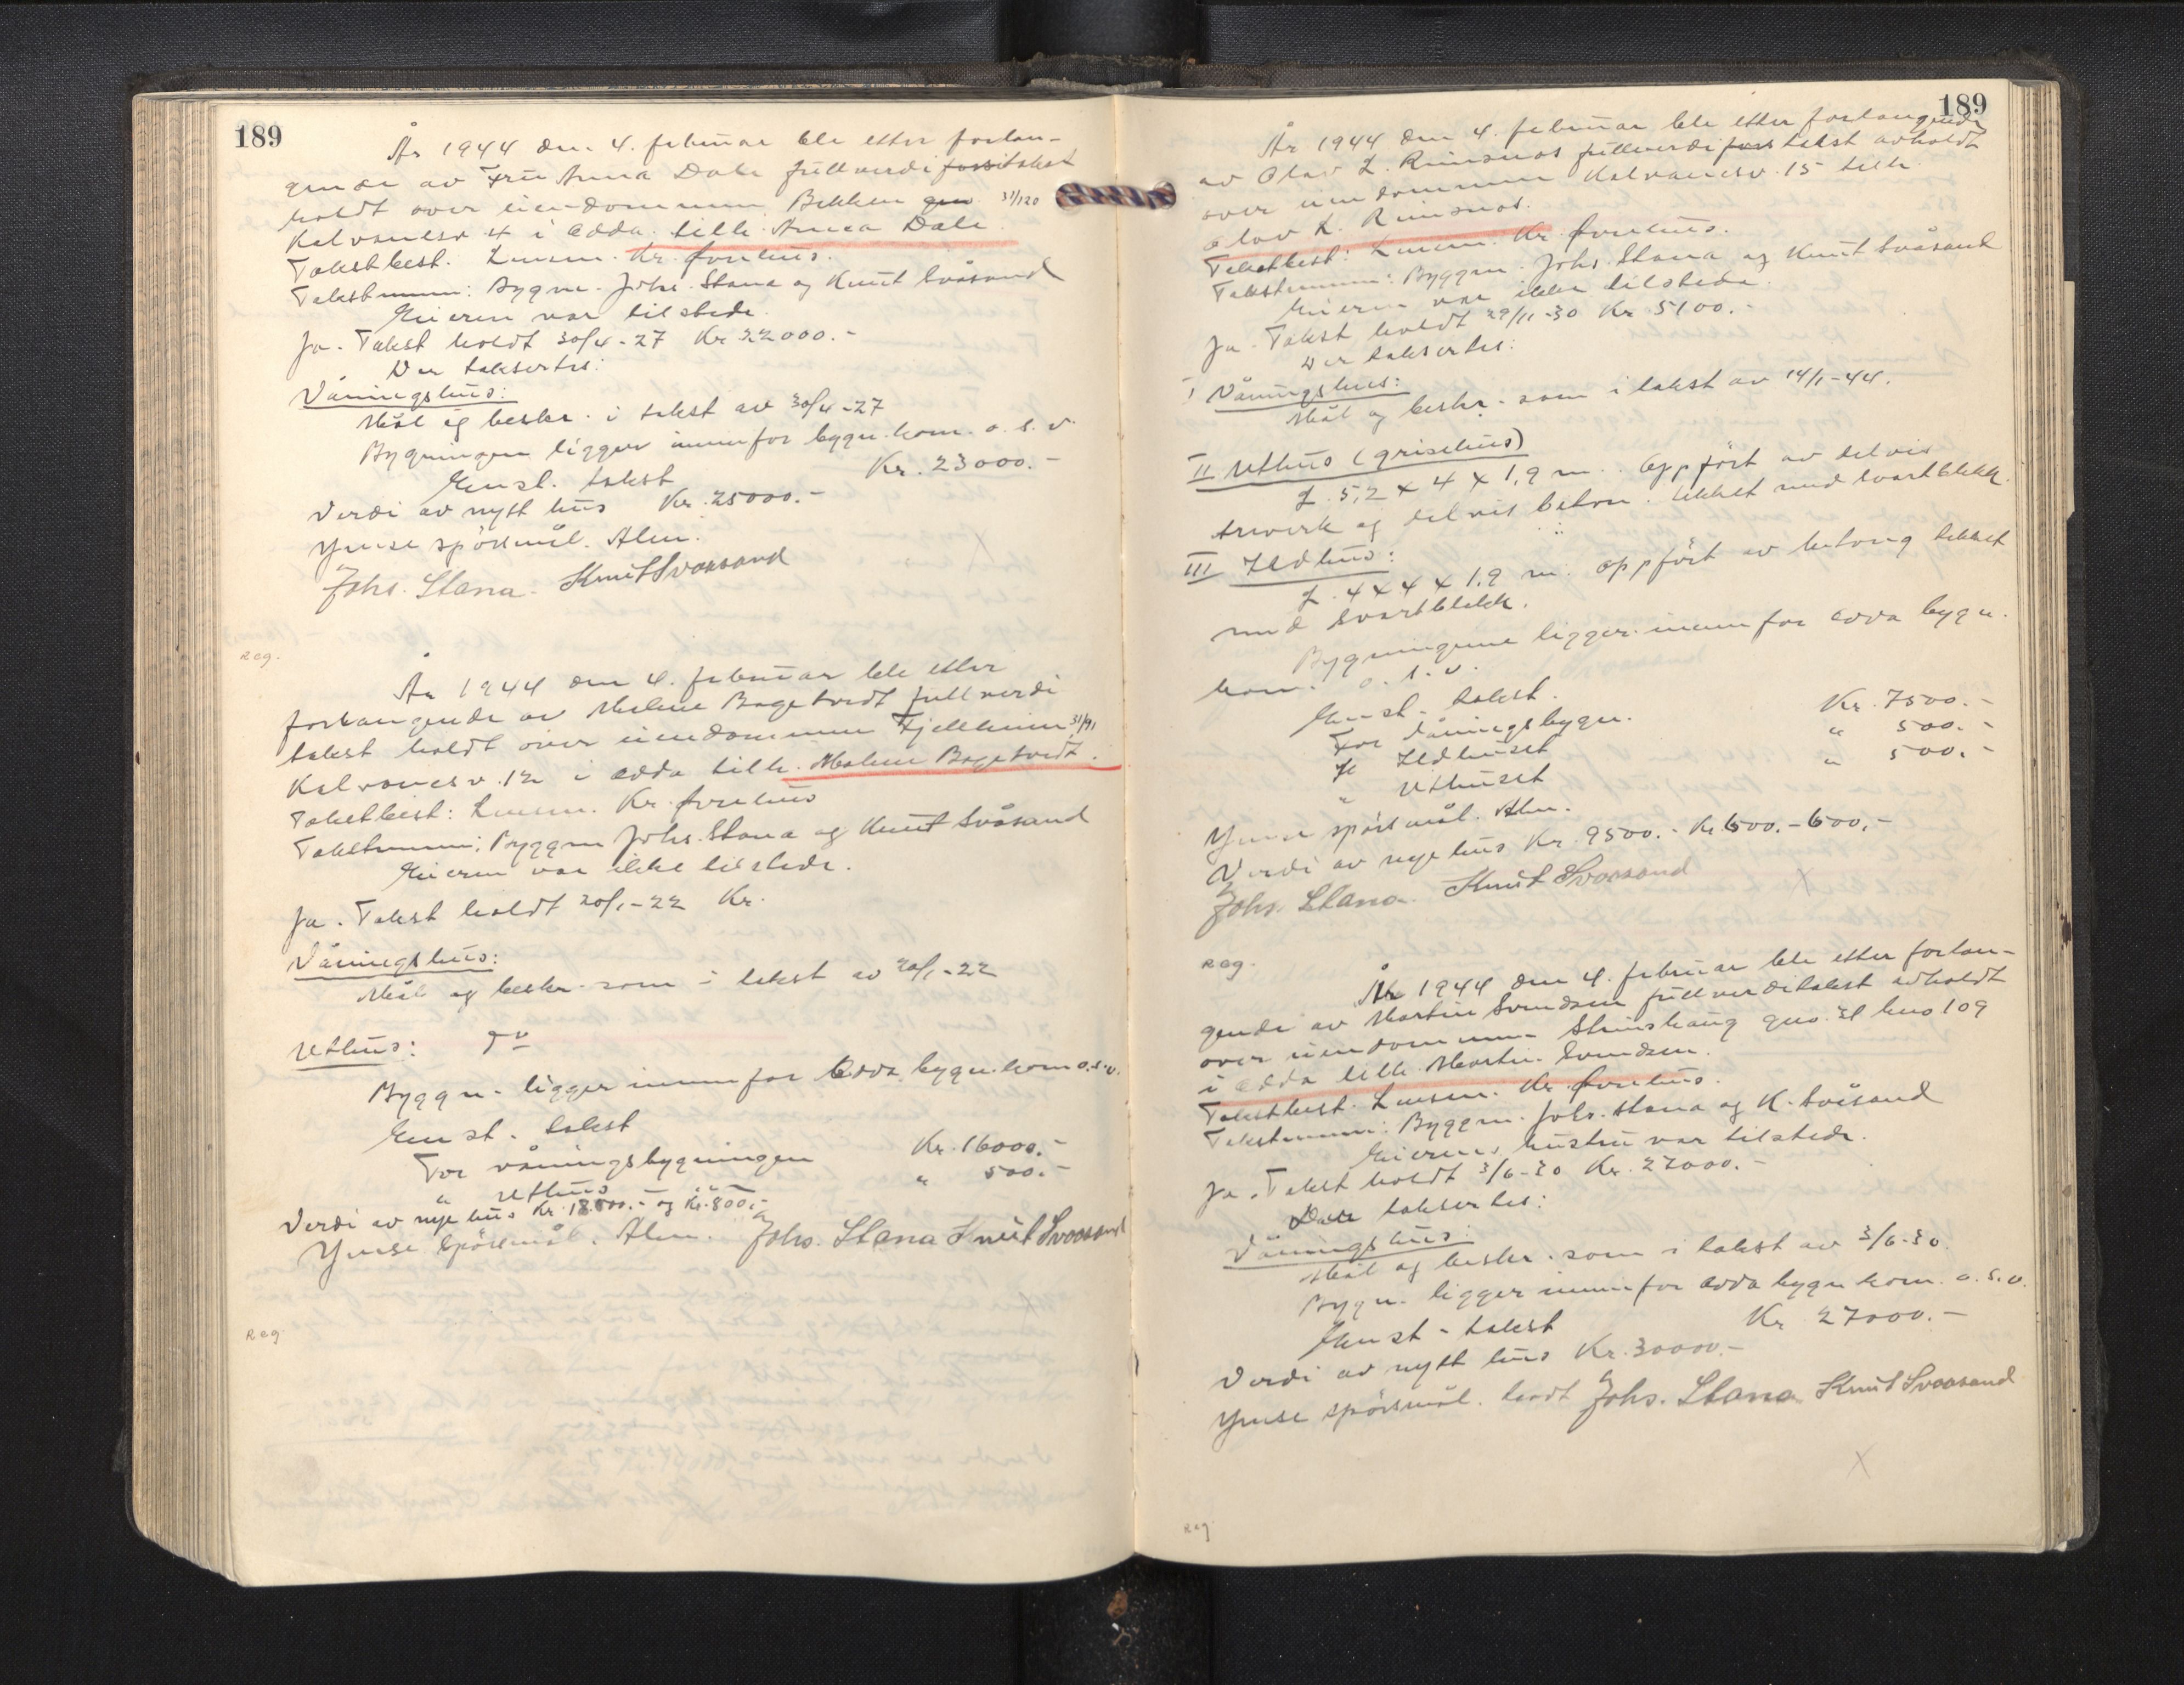 189
År 1944 den 4. februar ble etter forlan-
gende av Fru Anna Dale fullverdi takst
holdt over eiendommen Bekken gno 31/120
Kalvanesv 4 i Odda tilh. Anna Dale
Takstbest. Lensm. Kr.
Takstmenn: Bygm. Johs. Stana og Knut Svåsand
Eieren var tilstede.
Ja. Takst holdt 30/4-27 Kr 22000.-
Der taksertes:
Våningshus:
Mål og beskr. i takst av 30/4-27
Bygningen ligger innenfor bygn.kom. o. s. v.
Ensl. takst Kr. 23000.-
Verdi av nytt hus Kr. 25000.-
Ymse spörsmål. Alm.
Johs. Stana. Knut Svaasand
Reg.
År 1944 den 4. februar ble etter
forlangende av Malene Bagetvedt fullverdi
takst holdt over eiendommen Fjellheim 31/91
Kalvanesv. 12 i Odda tilh. Malene Bagetvedt.
Takstbest: Lensm. Kr.
Takstmenn: Byggm Johs. Stana og Knut Svåsand
Eieren var ikke tilstede.
Ja. Takst holdt 20/1-22 Kr.
Våningshus:
Mål og beskr. som i takst av 20/1-22
Uthus:
Byggn. ligger innenfor Odda bygn.kom o.s.v.
Ensl. takst
For våningsbygningen Kr. 16000.-
" Uthus " 500.-
Verdi av nye hus Kr. 18000.- og Kr. 800.-
Ymse spörsmål. Alm. Johs. Stana Knut Svaasand
Reg.
189
År 1944 den 4. februar ble etter forlangende
av Olav L. Reinsnos fullverdi takst avholdt
over eiendommen Kalvanesv. 15 tilh
Olav L. Reinsnos.
Takstbest: Lensm. Kr.
Takstmenn: Byggm. Johs. Stana og Knut Svåsand
Eieren var ikke tilstede.
Ja. Takst holdt 29/11-30 Kr 5100.-
Der taksertes:
I Våningshus:
Mål og beskr. som i takst av 14/1-44.
II Uthus (grisehus)
f. 5,2 x 4 x 1,9 m. Oppfört av delvis
treverk og delvis beton. tekket med svartblekk.
III Ildhus:
f. 4 x 4 x 1.9 m. oppfört av betong tekket
med svartblekk.
Bygningene ligger innenfor Odda bygn.
kom. o. s. v.
Ensl. takst.
For våningsbygn. Kr. 7500.-
" Ildhuset " 500.-
" Uthuset " 500.-
Ymse spörsmål. Alm.
Verdi av nye hus Kr. 9500.- Kr 600.-600.-
Johs. Stana. Knut Svaasand
Reg.
År 1944 den 4. februar ble etter forlan-
gende av Martin Svendsen fullverditakst avholdt
over eiendommen Steinshaug gno. 31 bno 109
i Odda tilh. Martin Svendsen.
Takstbest. Lensm. Kr.
Takstmenn: Byggm. Johs. Stana og K. Svåsand
Eierens hustru var tilstede.
Ja. Takst holdt 3/6-30 Kr. 27000.-
Der taksertes:
Våningshus:
Mål og beskr. som i takst av 3/6-30
Bygn. ligger innenfor Odda bygn kom. o. s. v.
Ensl. takst Kr 27000.-
Verdi av nytt hus Kr. 30000.-
Ymse spörsmål. Johs. Stana Knut Svaasand
Reg